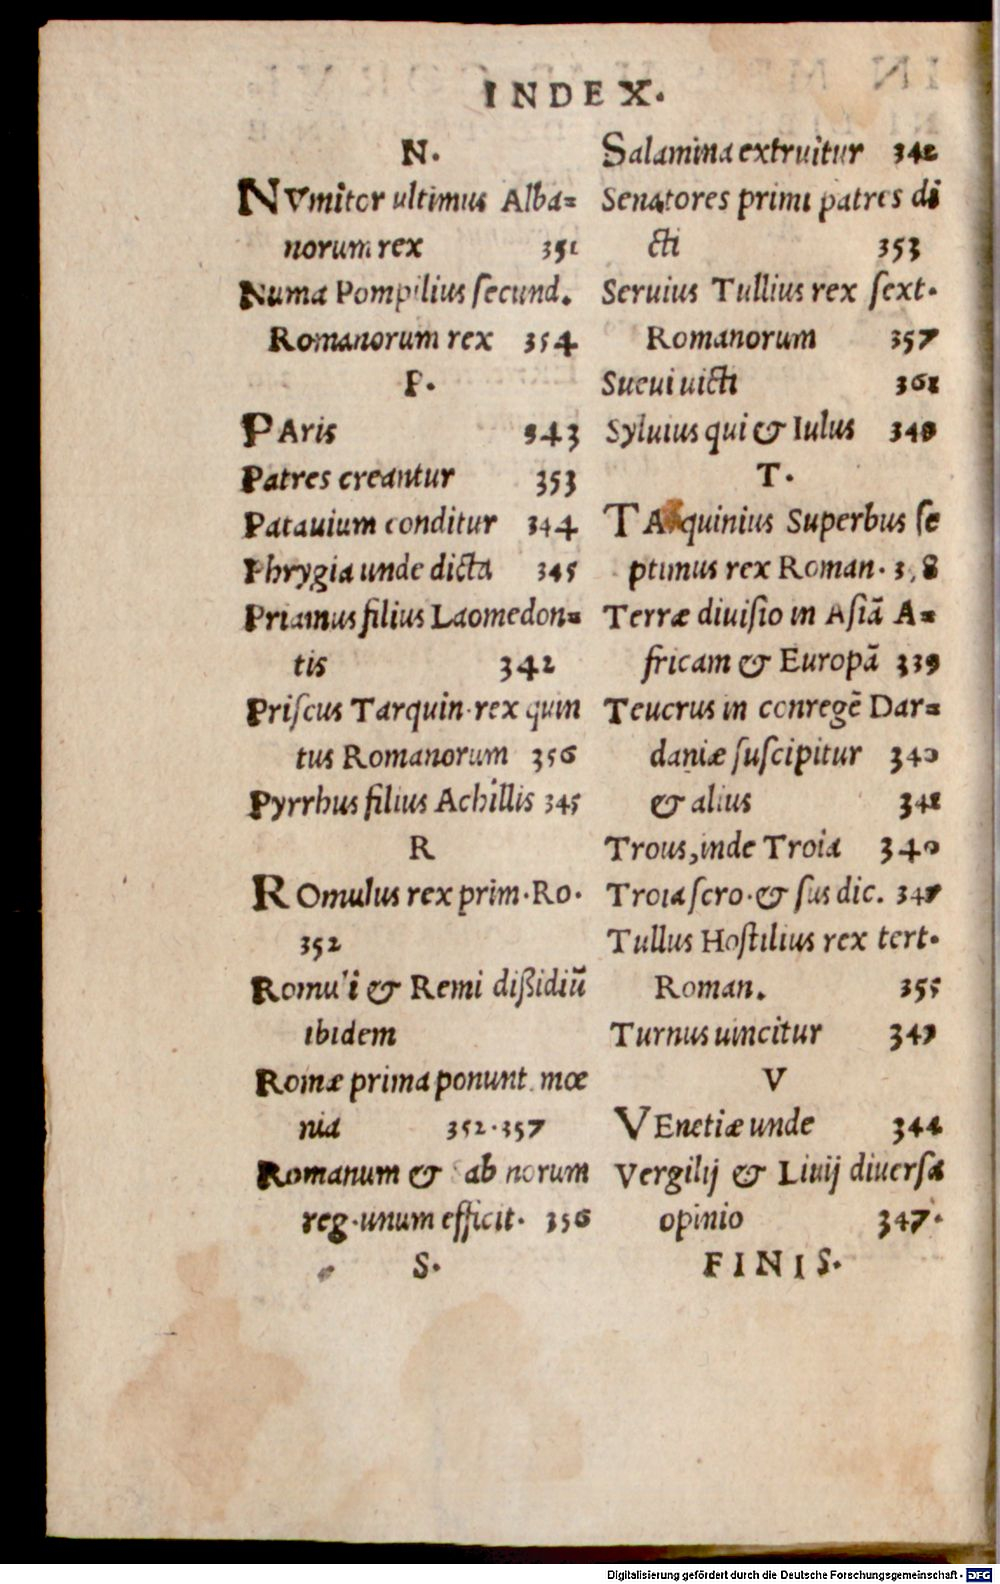 INDEX.
N.
NVmitor ultimus Alba=
norum rex 351
Numa Pompilius secund.
Romanorum rex 354
P.
PAris 343
Patres creantur 353
Patauium conditur 344
Phrygia unde dicta 345
Priamus filius Laomedon=
tis 342
Priscus Tarquin. rex quin
tus Romanorum 356
Pyrrhus filius Achillis 345
R
ROmulus rex prim. Ro.
352
Romuli & Remi dißidiũ
ibidem
Romæ prima ponunt mœ
nia 352.357
Romanum & Sabinorum
reg. unum efficit. 356
S.
Salamina extruitur 342
Senatores primi patres di
cti 353
Seruius Tullius rex sext.
Romanorum 357
Sueui uicti
Syluius qui & Iulus
T.
TArquinius Superbus se
ptimus rex Roman.
Terræ diuisio in Asiã A=
fricam & Europã 339
Teucrus in conregẽ Dar=
daniæ suscipitur 340
& alius
Trous, inde Troia 340
Troia sero. & sus dic.
Tullus Hostilius rex tert.
Roman. 355
Turnus uincitur
V
VEnetiæ unde 344
Vergilij & Liuij diuersa
opinio 347.
FINIS.
Digitalisierung gefördert durch die Deutsche Forschungsgemeinschaft - DFG